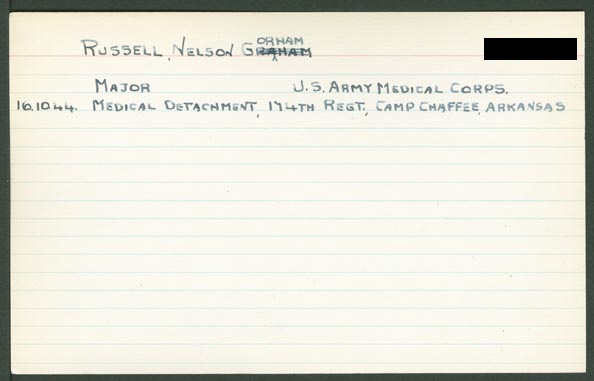 RUSSELL, NELSON GORHAM
MAJOR U.S. ARMY MEDICAL CORPS.
16.10.44. MEDICAL DETACHMENT, 174TH REGT., CAMP CHAFFEE, ARKANSAS